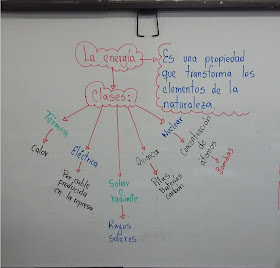 La energía
Es una propiedad
que transforma los
elementos de la
naturaleza.
Clases:
Térmica
Calor
Eléctrica
Por cable
producida
en la represa
Solar
o
radiante
Rayos
solares
Química
Pilas,
Baterías
carbón
Nuclear
Concentración
de
átomos
Bombas